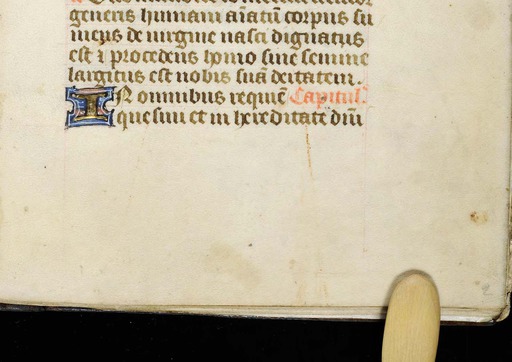 generis humani aīatū corpus su
mens de virgine nasci dignatus
est ⁊ procedens homo sine semine
largitus est nobis suā deitatem.
IN omnibus requiē Capitul'
quesiui et in hereditate dn̄i